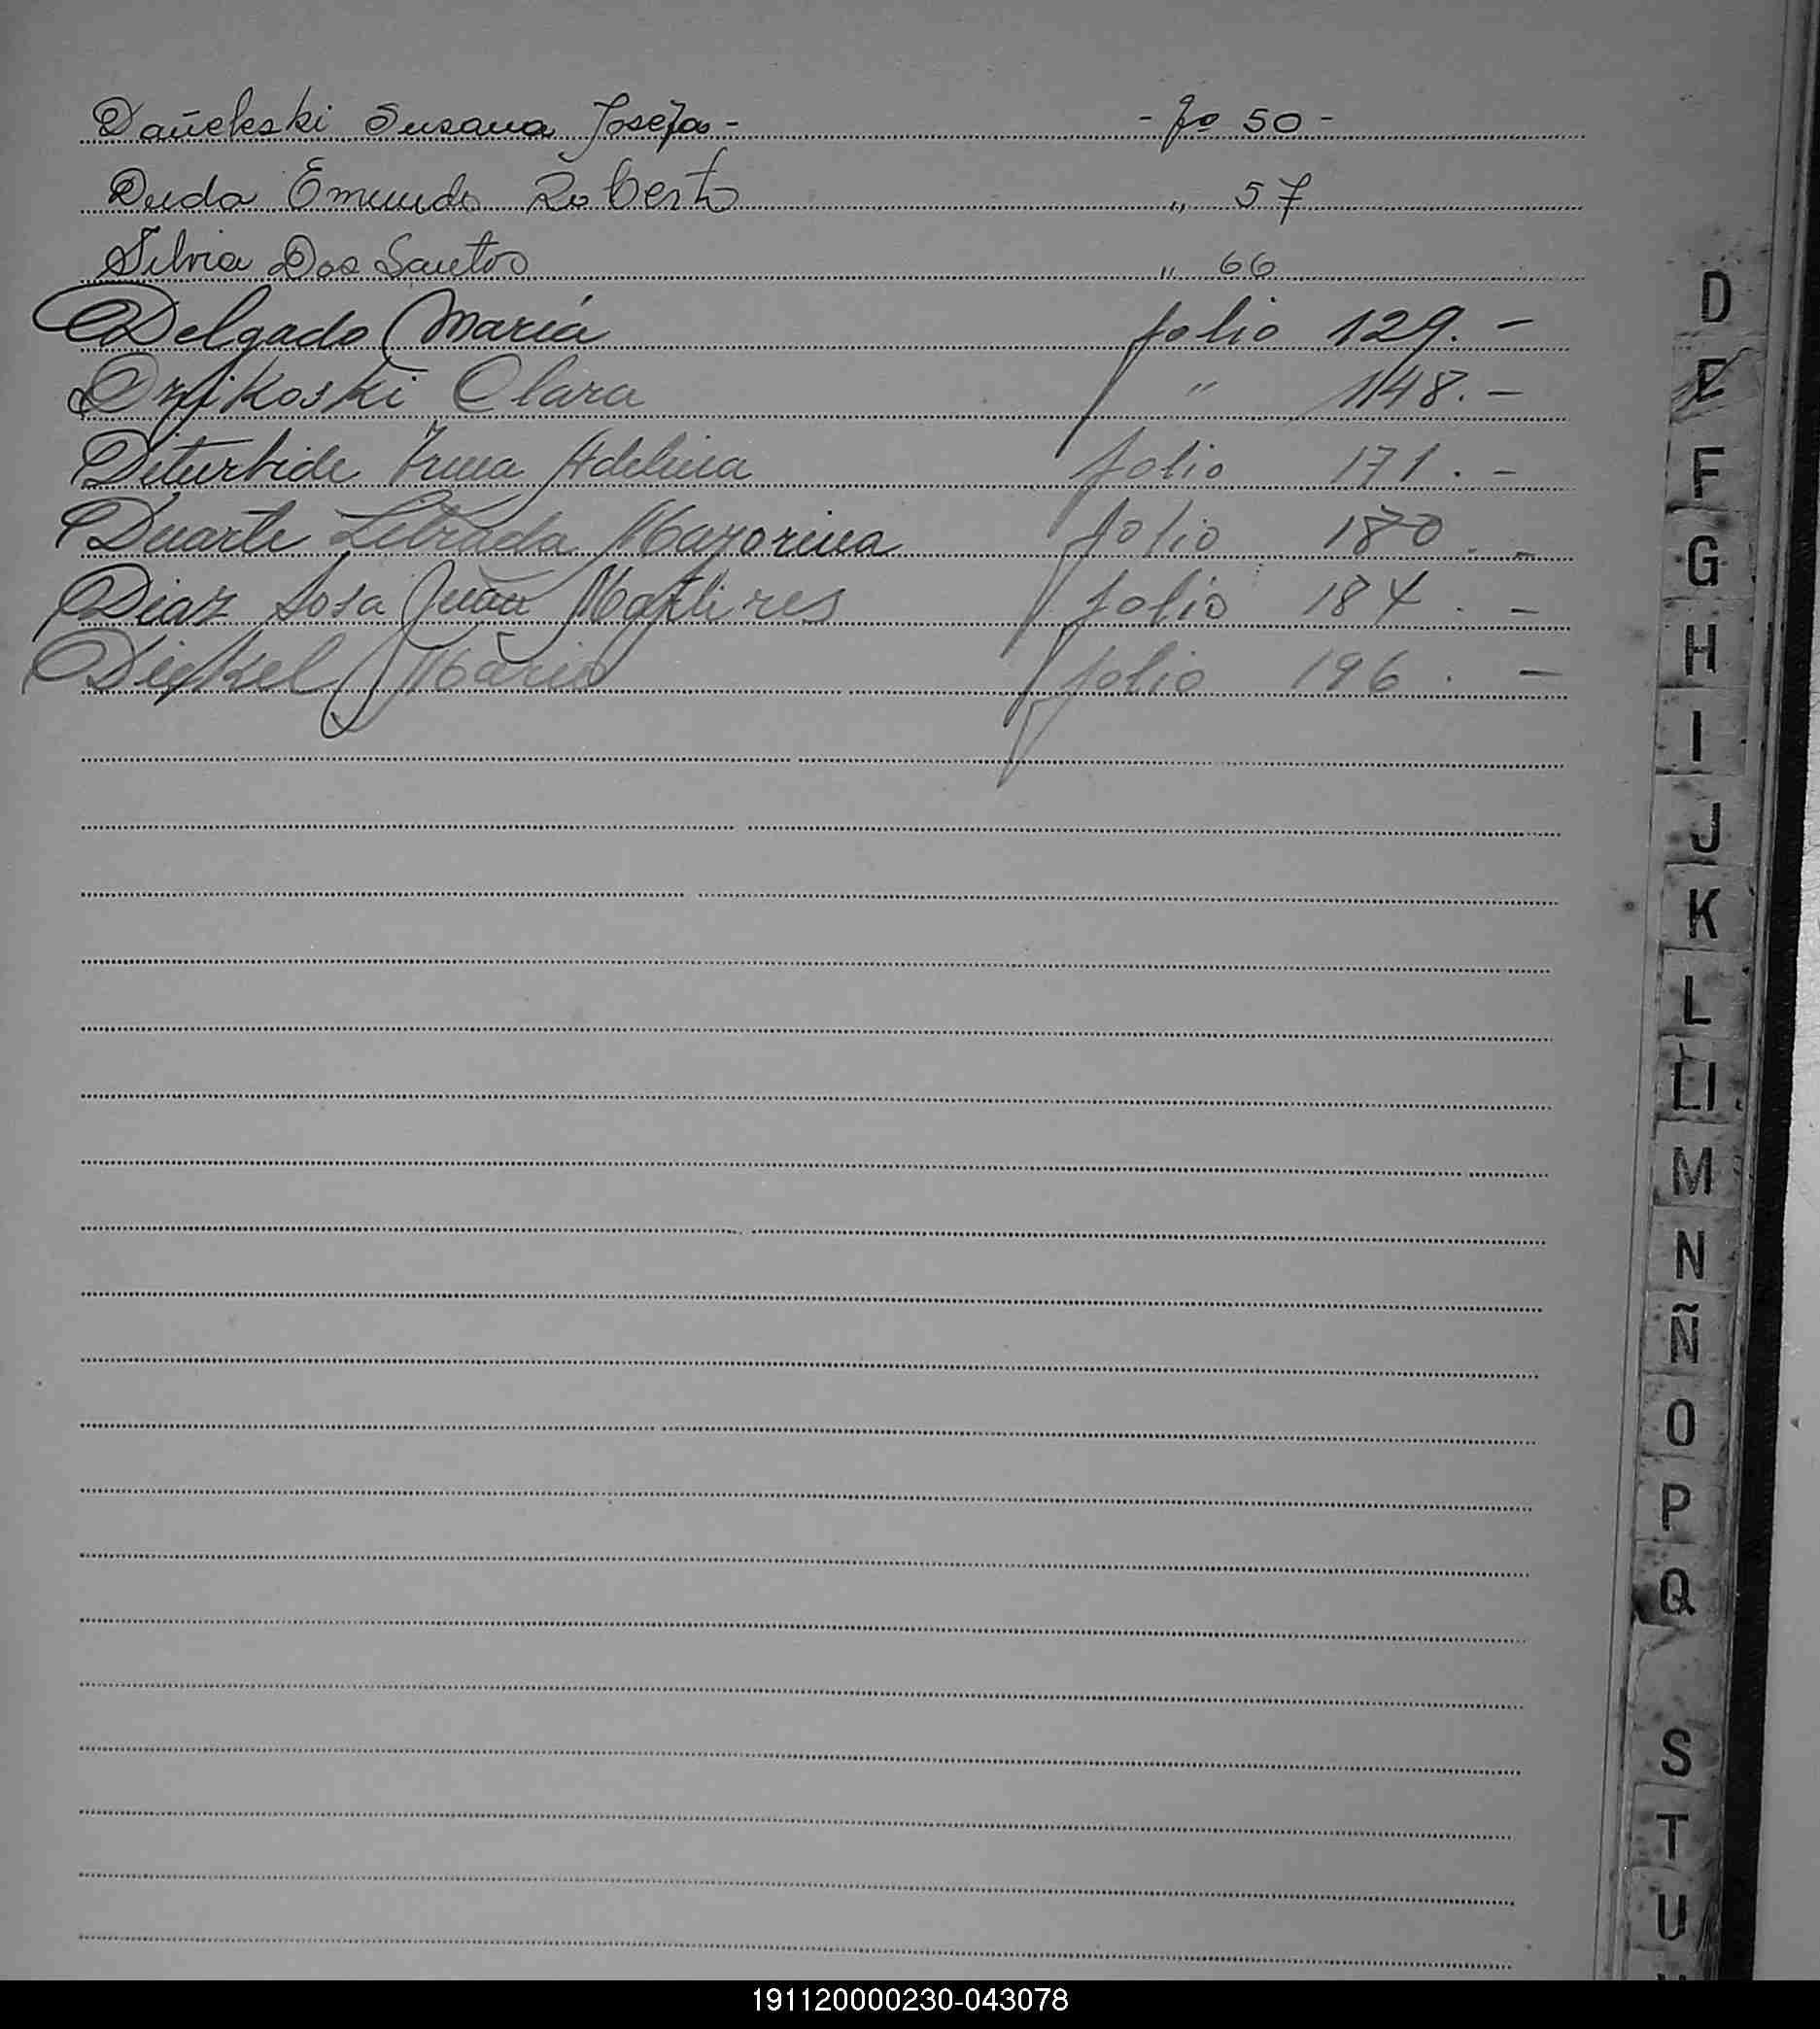 Dañelski Susana Josefa - - fo 50 -
Duda Emundo Roberto " 57
Silvia Dos Santos " 66
Delgado María folio 129. -
Dzikoski Clara " 148. -
Diturbide Irma Adelina folio 171. -
Duarte Librada Mayorina folio 180. -
Diaz Sosa Juan folio 184. -
Mario folio 196. -
D
E
F
G
H
I
J
K
L
Ll
M
N
Ñ
O
P
Q
S
T
U
191120000230-043078